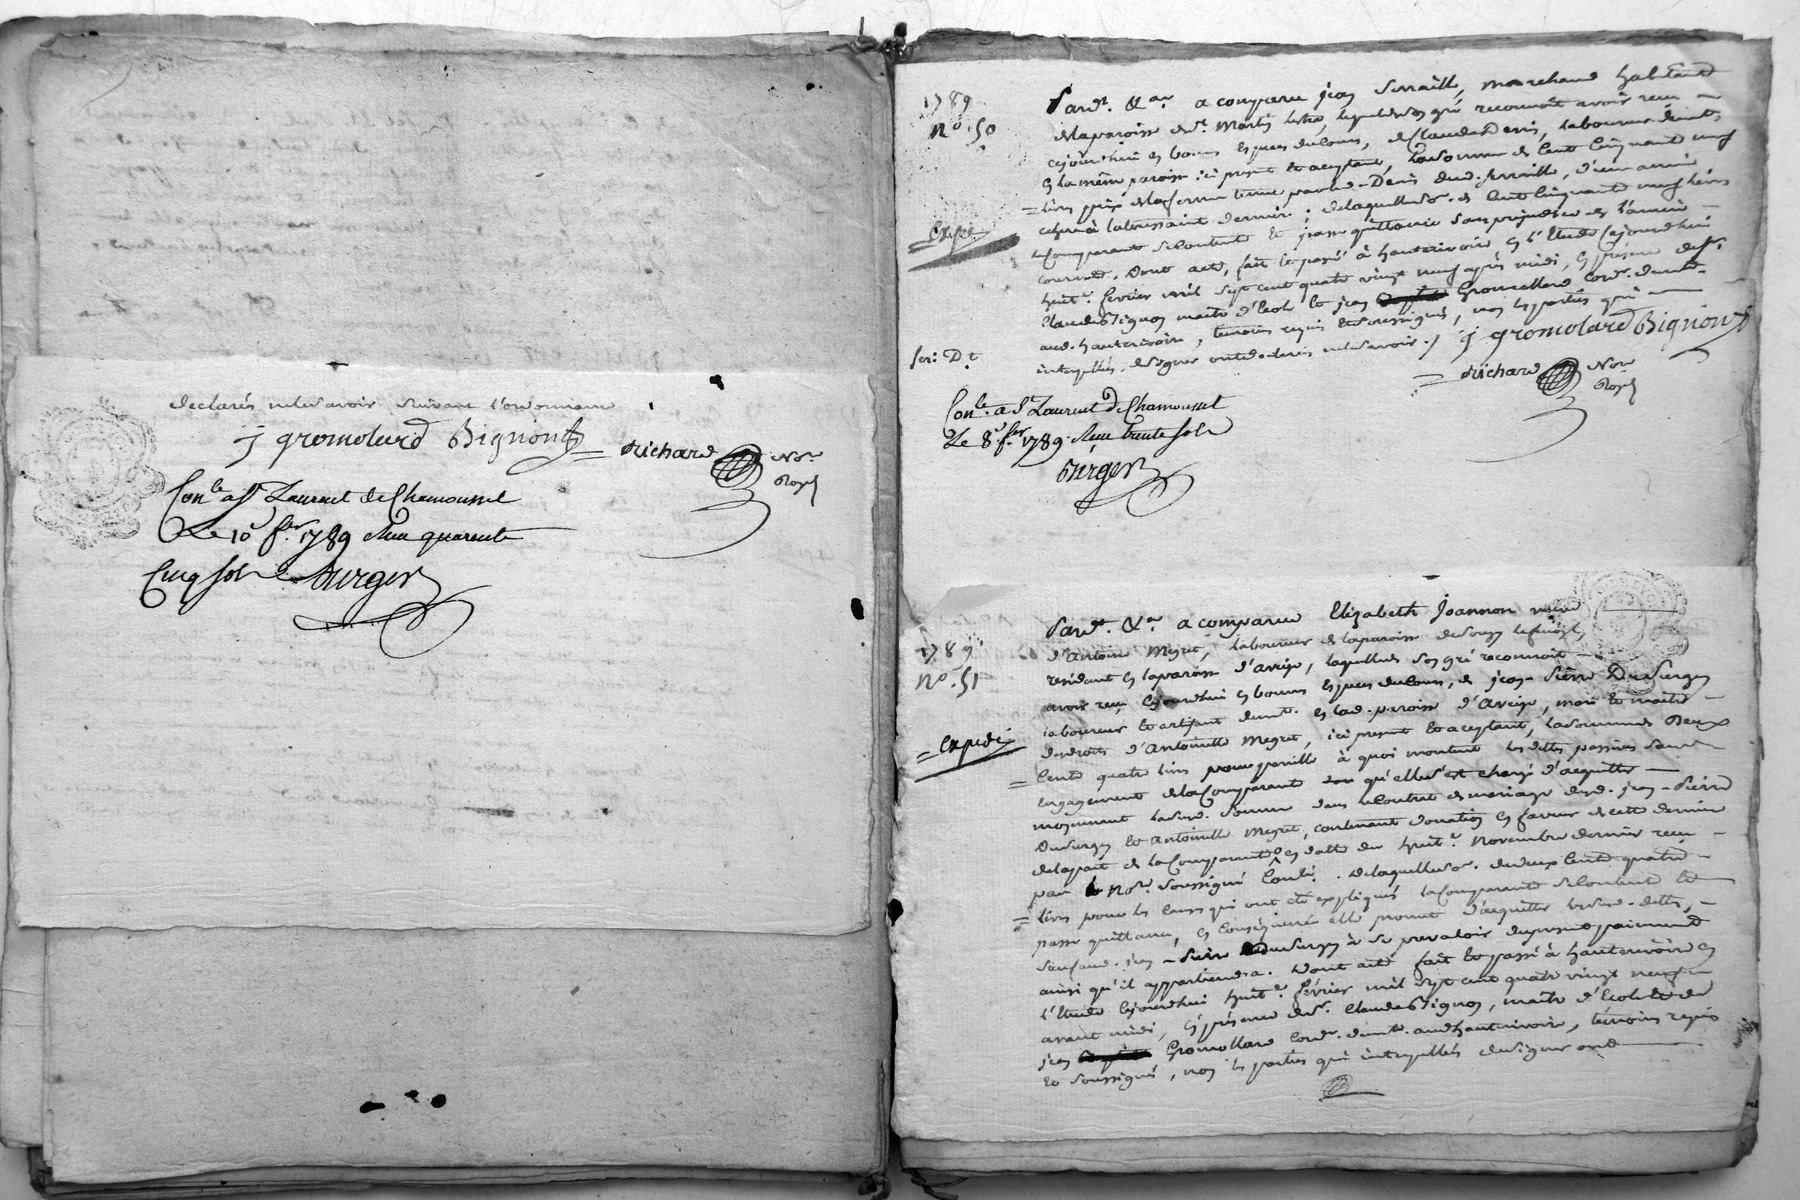 declarés ne le savoir suivant l'ordonnance
j gromolard Bignon Richard Nore
Royal
Conle. a St. Laurent de Chamousset
Le 10 fer. 1789 Reçu quarente
Cinq sols Burger
1789
No. 50
Pardt. &a. a comparu jean Serraille, marchand habitant
de la paroisse de St. Martin lestra, lequel de son gré reconnoit avoir reçu
cejourdhui en bonnes especes de cours, de Claude Denis, laboureur demt.
en la même paroisse ici present et aceptant, la somme de cent cinquante neuf
livres prix de la ferme tenue par led. Denis dud. Serraille, d'une année
echue à la toussaint derniere ; de laquelle so. de cent cinquante neuf livres
le Comparant se contente et passe quittance sans prejudice de l'année
Expé
courante. Dont acte, fait et passé à hauterivoire en l'Etude cejourdhui
huite. fevrier mil sept cent quatre vingt neuf après midi, en présence de Sr.
Claude Bignon maitre d'Ecole et jean Gromollard cordr. demt.
aud. hauterivoire, temoins requis et soussignés, non les parties qui
interpellés de signer ont declarés ne le savoir ./ j gromolard Bignon
Richard Nore
Royal
Conle. a St. Laurent de Chamousset
Le 8 fer. 1789. Reçu trente sols
Burger
1789
No. 51
Pardt. &a. a comparu Elizabeth Joannon veuve
d'Antoine Megret, laboureur de la paroisse de
residant en la paroisse d'aveize, laquelle de son gré reconnoit
avoir reçu cejourdhui en bonnes especes de cours, de jean-Pierre Dusurgey
laboureur et artisant demt. en lad. paroisse d'Aveize, mari et maitre
Expedié
des droits d'Antoinette Megret, ici present et aceptant, la somme de Deux
Cents quatre livres pour pareille à quoi montent les dettes passives sans
engagement de la Comparante et qu'elle s'est chargé d'acquitter
moyennant lad. somme dans le Contrat de mariage dud. jean-Pierre
Dusurgey et Antoinette Megret, contenant donation en faveur de cette derniere
de la part de la Comparante en datte du huite. Novembre dernier reçu
par le Nore. soussigné Conle. . de laquelle so. de deux cents quatre
livres pour les causes qui ont été expliqués la Comparante se contente et
passe quittance, en conséquence elle promet d'acquitter lesd. dettes,
sauf aud. jean-Pierre Dusurgey à se prevaloir du present paiement
ainsi qu'il appartiendra. Dont acte fait et passé à hauterivoire en
l'Etude cejourdhui huite. février mil sept cent quatre vingt neuf
avant midi, en présence de Sr. Claude Bignon, maitre d'Ecole et de
jean Gromollard cordr. demt. aud. hauterivoire, témoins requis
et soussignés, non les parties qui interpellés de signer ont